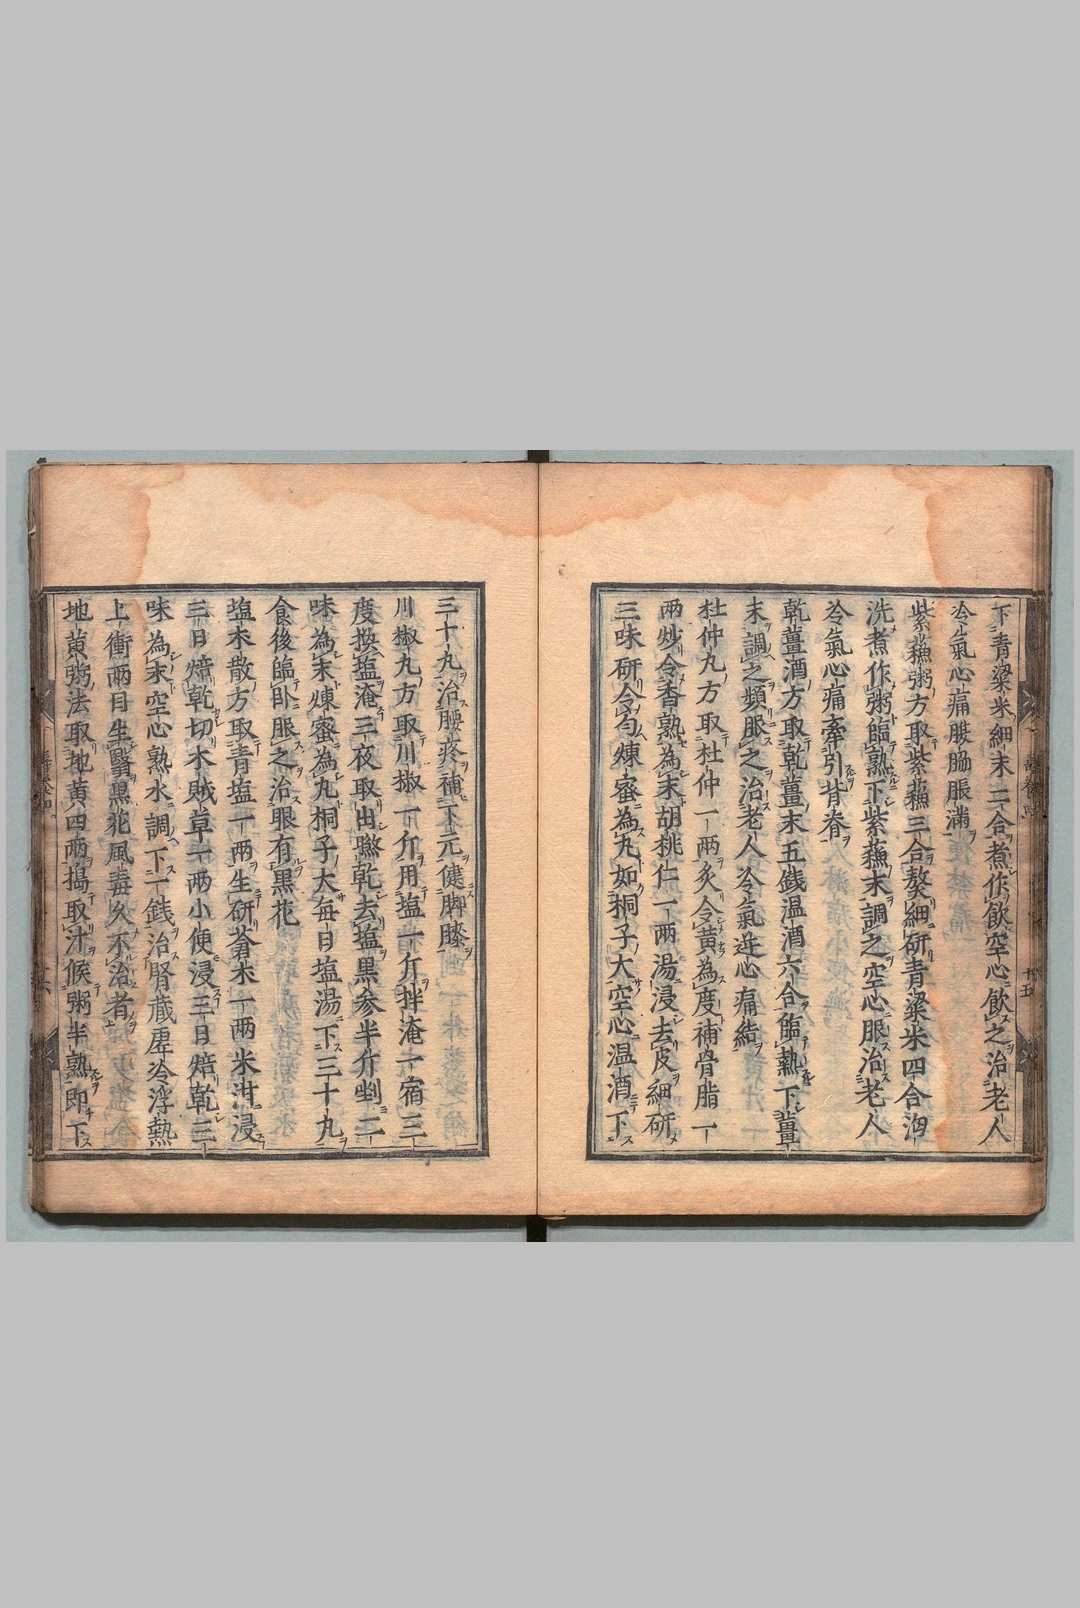 下青粱米細末二合煮作飲空心飲之治老人
冷氣心痛腹脇脹滿
紫蘓粥方取紫蘓三合熬細研青粱米四合洵
洗煮作粥臨熟下紫蘓末調之空心服治老人
冷氣心痛牽引背脊
乾薑酒方取乾薑末五銭温酒六合臨熱下薑
末調之頻服之治老人冷氣逆心痛結
杜仲丸方取杜仲一兩炙令黄為度補骨脂一
兩炒令香熟為末胡桃仁一兩湯浸去皮細研
三味研令勻煉蜜為丸如桐子大空心温酒下
三十丸治腰疼補下元健脚膝
川椒丸方取川椒一斤用塩一斤拌淹一宿三
度換塩淹三夜取出㬠乾去塩黒参半斤剉二
味為末煉蜜為丸桐子大每日塩湯下三十丸
食後臨卧服之治眼有黒花
塩朮散方取青塩一兩生研蒼朮一兩米泔浸
三日焙乾切木賊草一兩小便浸三日焙乾三
味為末空心熟水調下一銭治腎藏虚冷浮熱
上衝兩目生瞖黒花風毒久不治者
地黄粥法取地黄四兩搗取汁候粥半熟即下